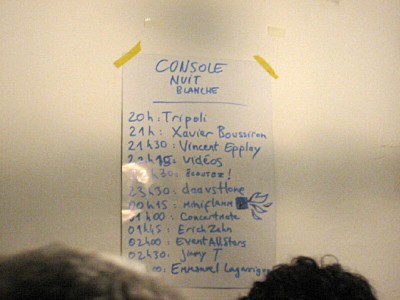 CONSOLE
NUIT
BLANCHE
20h: Tripoli
21h: Xavier Boussiron
21h30: Vincent Epplay
vidéos
Écoutez!
23h30: daavstone
00h15: miniflamm
01h00: Concentrate
01h45: Erich Zahn
02h00: Event Allstars
02h30: Jimmy T
Emmanuel Lagarrigue